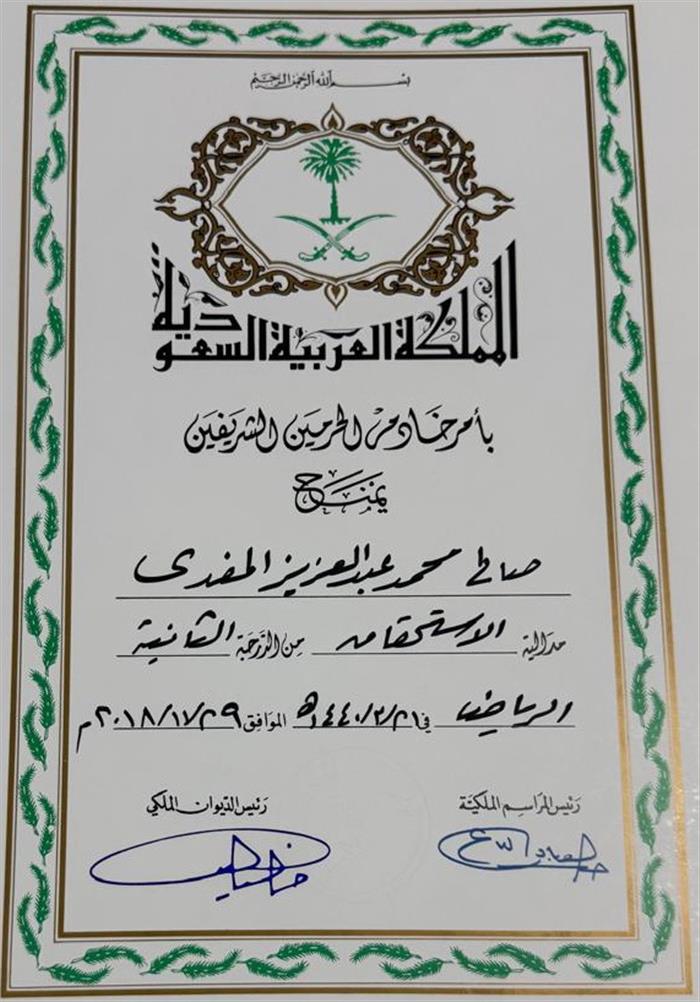 بسم الله الرحمن الرحيم
المملكة العربية السعودية
بأمر خادم الحرمين الشريفين
يمنح
صالح محمد عبد العزيز المفدى
مدالية الاستحقاق من الدرجة الثانية
الرياض في ١٤٤٠/٣/٢١هـ الموافق ٢٠١٨/١١/٢٩م
رئيس المراسم الملكية
رئيس الديوان الملكي